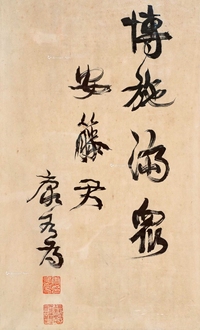 博施濟眾
安藤君
康有為